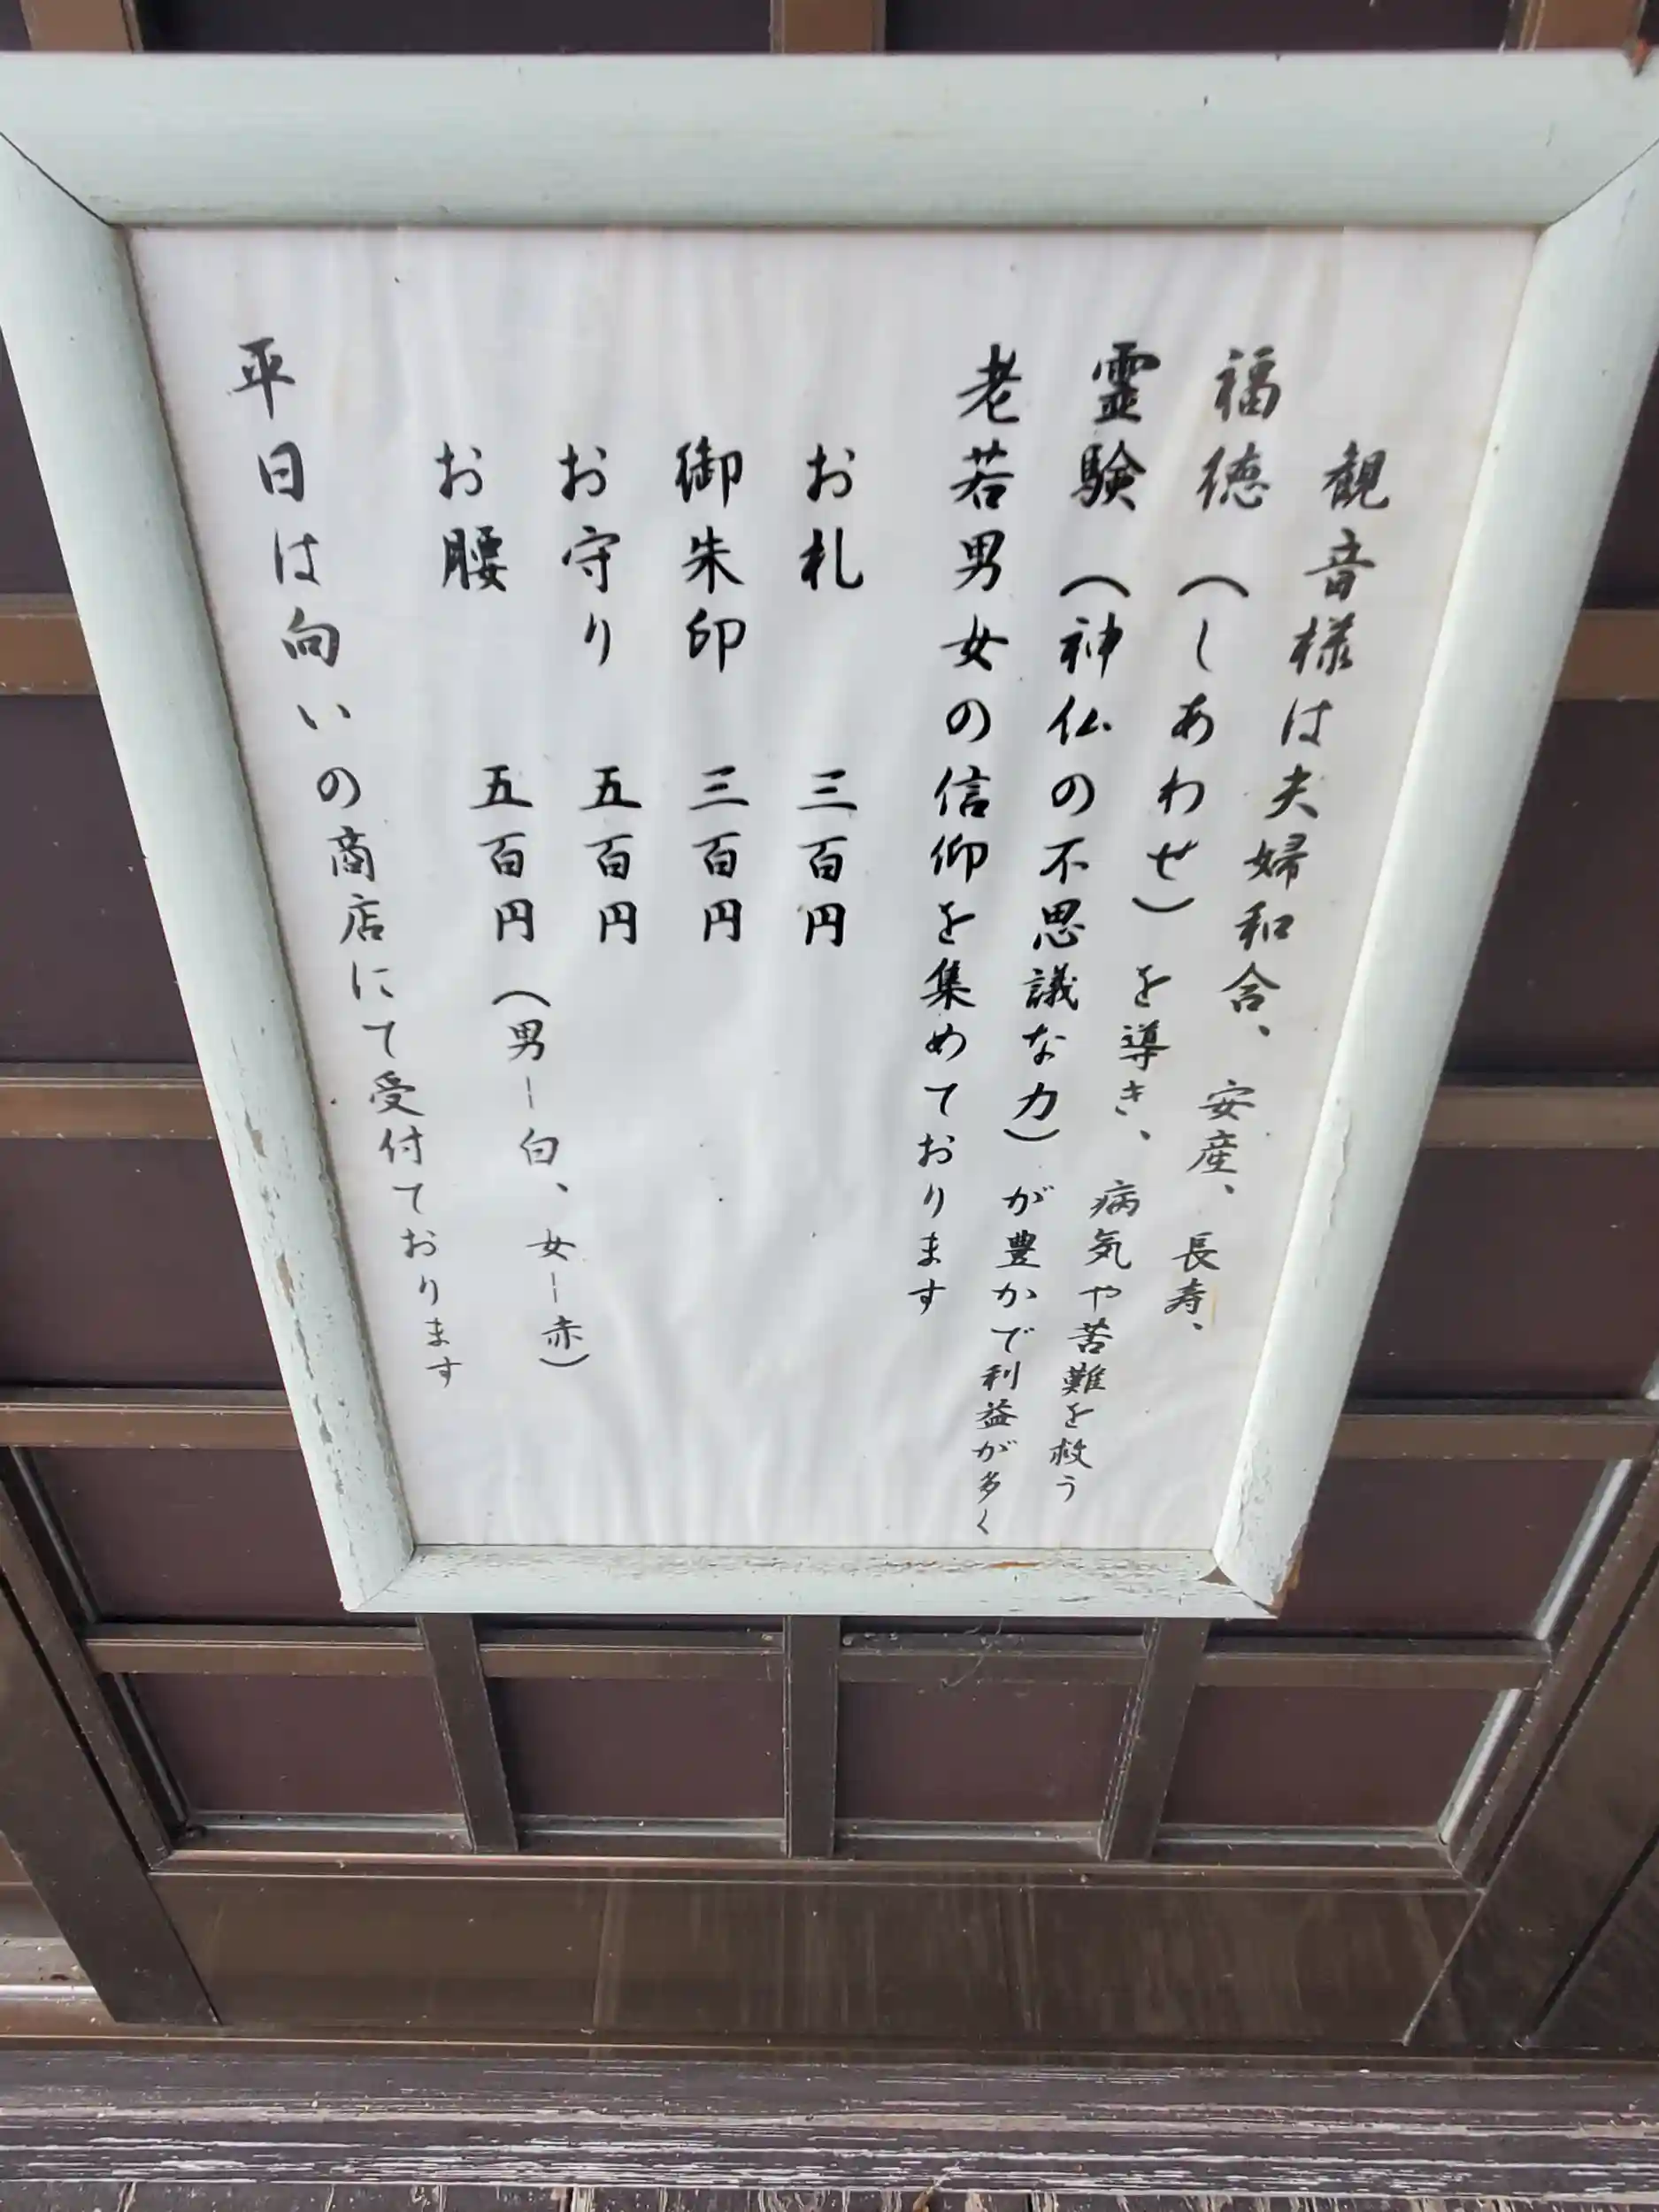 観音様は夫婦和合、安産、長寿、
福徳（しあわせ）を導き、病気や苦難を救う
霊験（神仏の不思議な力）が豊かで利益が多く
老若男女の信仰を集めております
お札　三百円
御朱印　三百円
お守り　五百円
お腰　五百円（男－白、女－赤）
平日は向いの商店にて受付ております